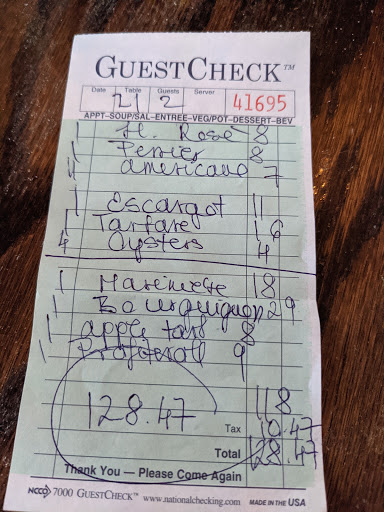 GUESTCHECK™
Date Table Guests Server
21 2 41695
APPT-SOUP/SAL-ENTREE-VEG/POT-DESSERT-BEV
1 H. Rosé 8
1 Perrier 8
1 americano 7
1 Escargot 11
1 Tartare 16
4 Oysters 4
1 Mariniere 18
1 Bourguignon 29
1 apple tart 8
1 Profiteroll 9
118
128.47
Tax 10.47
Total 128.47
Thank You — Please Come Again
NCCO 7000 GUESTCHECK™ www.nationalchecking.com MADE IN THE USA